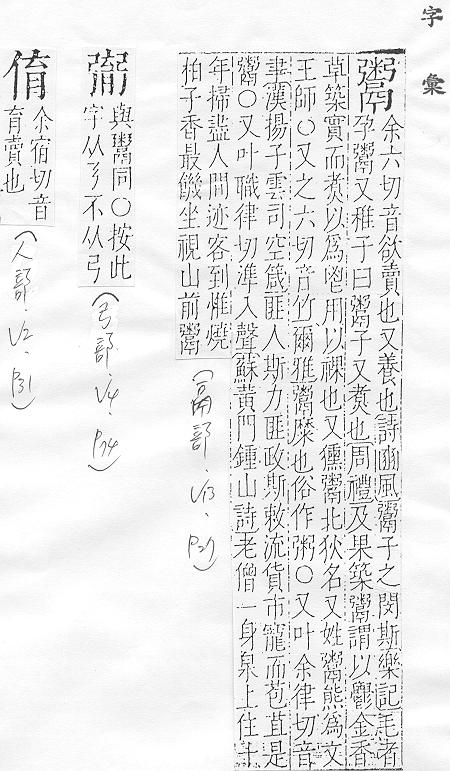 字彙
鬻 余六切音欲賣也又養也詩豳風鬻子之閔斯樂記毛者
孕鬻又稚子曰鬻子又煑也周禮及果築鬻謂以鬱金香
草築實而煑以爲鬯用以祼也又獯鬻北狄名又姓鬻熊爲文
王師○又之六切音竹爾雅鬻糜也俗作粥○又叶余律切音
聿漢揚子雲司空箴匪人斯力匪政斯敕流貨市寵而苞苴是
鬻○又叶職律切準入聲蘇黃門鍾山詩老僧一身泉上住十
年掃盡人間迹客到惟燒
柏子香最饑坐視山前鬻
(鬲部、V13、P27)
與鬻同○按此
字从䰜不从弓
(弓部、V4、P74)
㑗 余宿切音
育賣也
(人部、V2、P31)